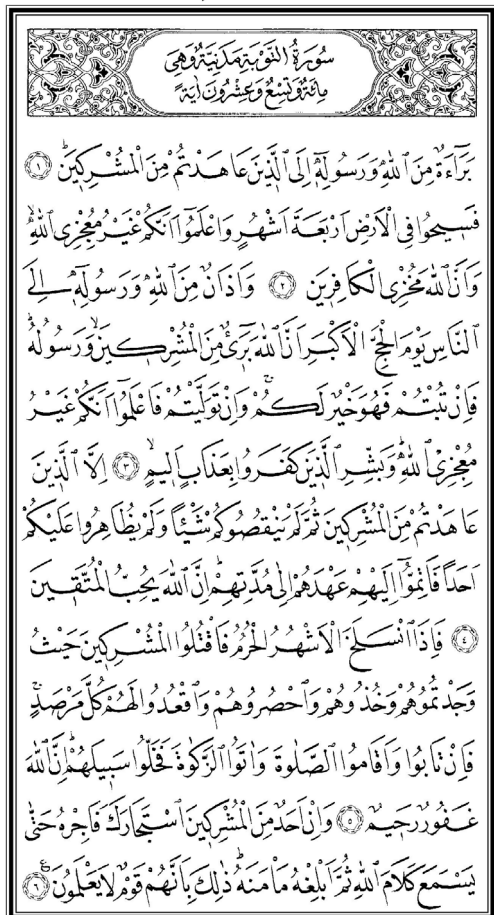 سُورَةُ التَّوْبَةِ مَدَنِيَّةٌ وَهِيَ
مِائَةٌ وَتِسْعٌ وَعِشْرُونَ اٰيَةً
بَرَٓاءَةٌ مِنَ اللّٰهِ وَرَسُولِه۪ٓ اِلَى الَّذ۪ينَ عَاهَدْتُمْ مِنَ الْمُشْرِك۪ينَۜ ﴿١﴾
فَس۪يحُوا فِي الْاَرْضِ اَرْبَعَةَ اَشْهُرٍ وَاعْلَمُٓوا اَنَّكُمْ غَيْرُ مُعْجِزِي اللّٰهِۙ
وَاَنَّ اللّٰهَ مُخْزِي الْكَافِر۪ينَ ﴿٢﴾ وَاَذَانٌ مِنَ اللّٰهِ وَرَسُولِه۪ٓ اِلَى
النَّاسِ يَوْمَ الْحَجِّ الْاَكْبَرِ اَنَّ اللّٰهَ بَر۪ٓيءٌ مِنَ الْمُشْرِك۪ينَۙ وَرَسُولُهُۜ
فَاِنْ تُبْتُمْ فَهُوَ خَيْرٌ لَكُمْۚ وَاِنْ تَوَلَّيْتُمْ فَاعْلَمُٓوا اَنَّكُمْ غَيْرُ
مُعْجِزِي اللّٰهِۜ وَبَشِّرِ الَّذ۪ينَ كَفَرُوا بِعَذَابٍ اَل۪يمٍۙ ﴿٣﴾ اِلَّا الَّذ۪ينَ
عَاهَدْتُمْ مِنَ الْمُشْرِك۪ينَ ثُمَّ لَمْ يَنْقُصُوكُمْ شَيْـًٔا وَلَمْ يُظَاهِرُوا عَلَيْكُمْ
اَحَدًا فَاَتِمُّٓوا اِلَيْهِمْ عَهْدَهُمْ اِلٰى مُدَّتِهِمْۜ اِنَّ اللّٰهَ يُحِبُّ الْمُتَّق۪ينَ
﴿٤﴾ فَاِذَا انْسَلَخَ الْاَشْهُرُ الْحُرُمُ فَاقْتُلُوا الْمُشْرِك۪ينَ حَيْثُ
وَجَدْتُمُوهُمْ وَخُذُوهُمْ وَاحْصُرُوهُمْ وَاقْعُدُوا لَهُمْ كُلَّ مَرْصَدٍۚ
فَاِنْ تَابُوا وَاَقَامُوا الصَّلٰوةَ وَاٰتَوُا الزَّكٰوةَ فَخَلُّوا سَب۪يلَهُمْۜ اِنَّ اللّٰهَ
غَفُورٌ رَح۪يمٌ ﴿٥﴾ وَاِنْ اَحَدٌ مِنَ الْمُشْرِك۪ينَ اسْتَجَارَكَ فَاَجِرْهُ حَتّٰى
يَسْمَعَ كَلَامَ اللّٰهِ ثُمَّ اَبْلِغْهُ مَأْمَنَهُۜ ذٰلِكَ بِاَنَّهُمْ قَوْمٌ لَا يَعْلَمُونَ۟ ﴿٦﴾